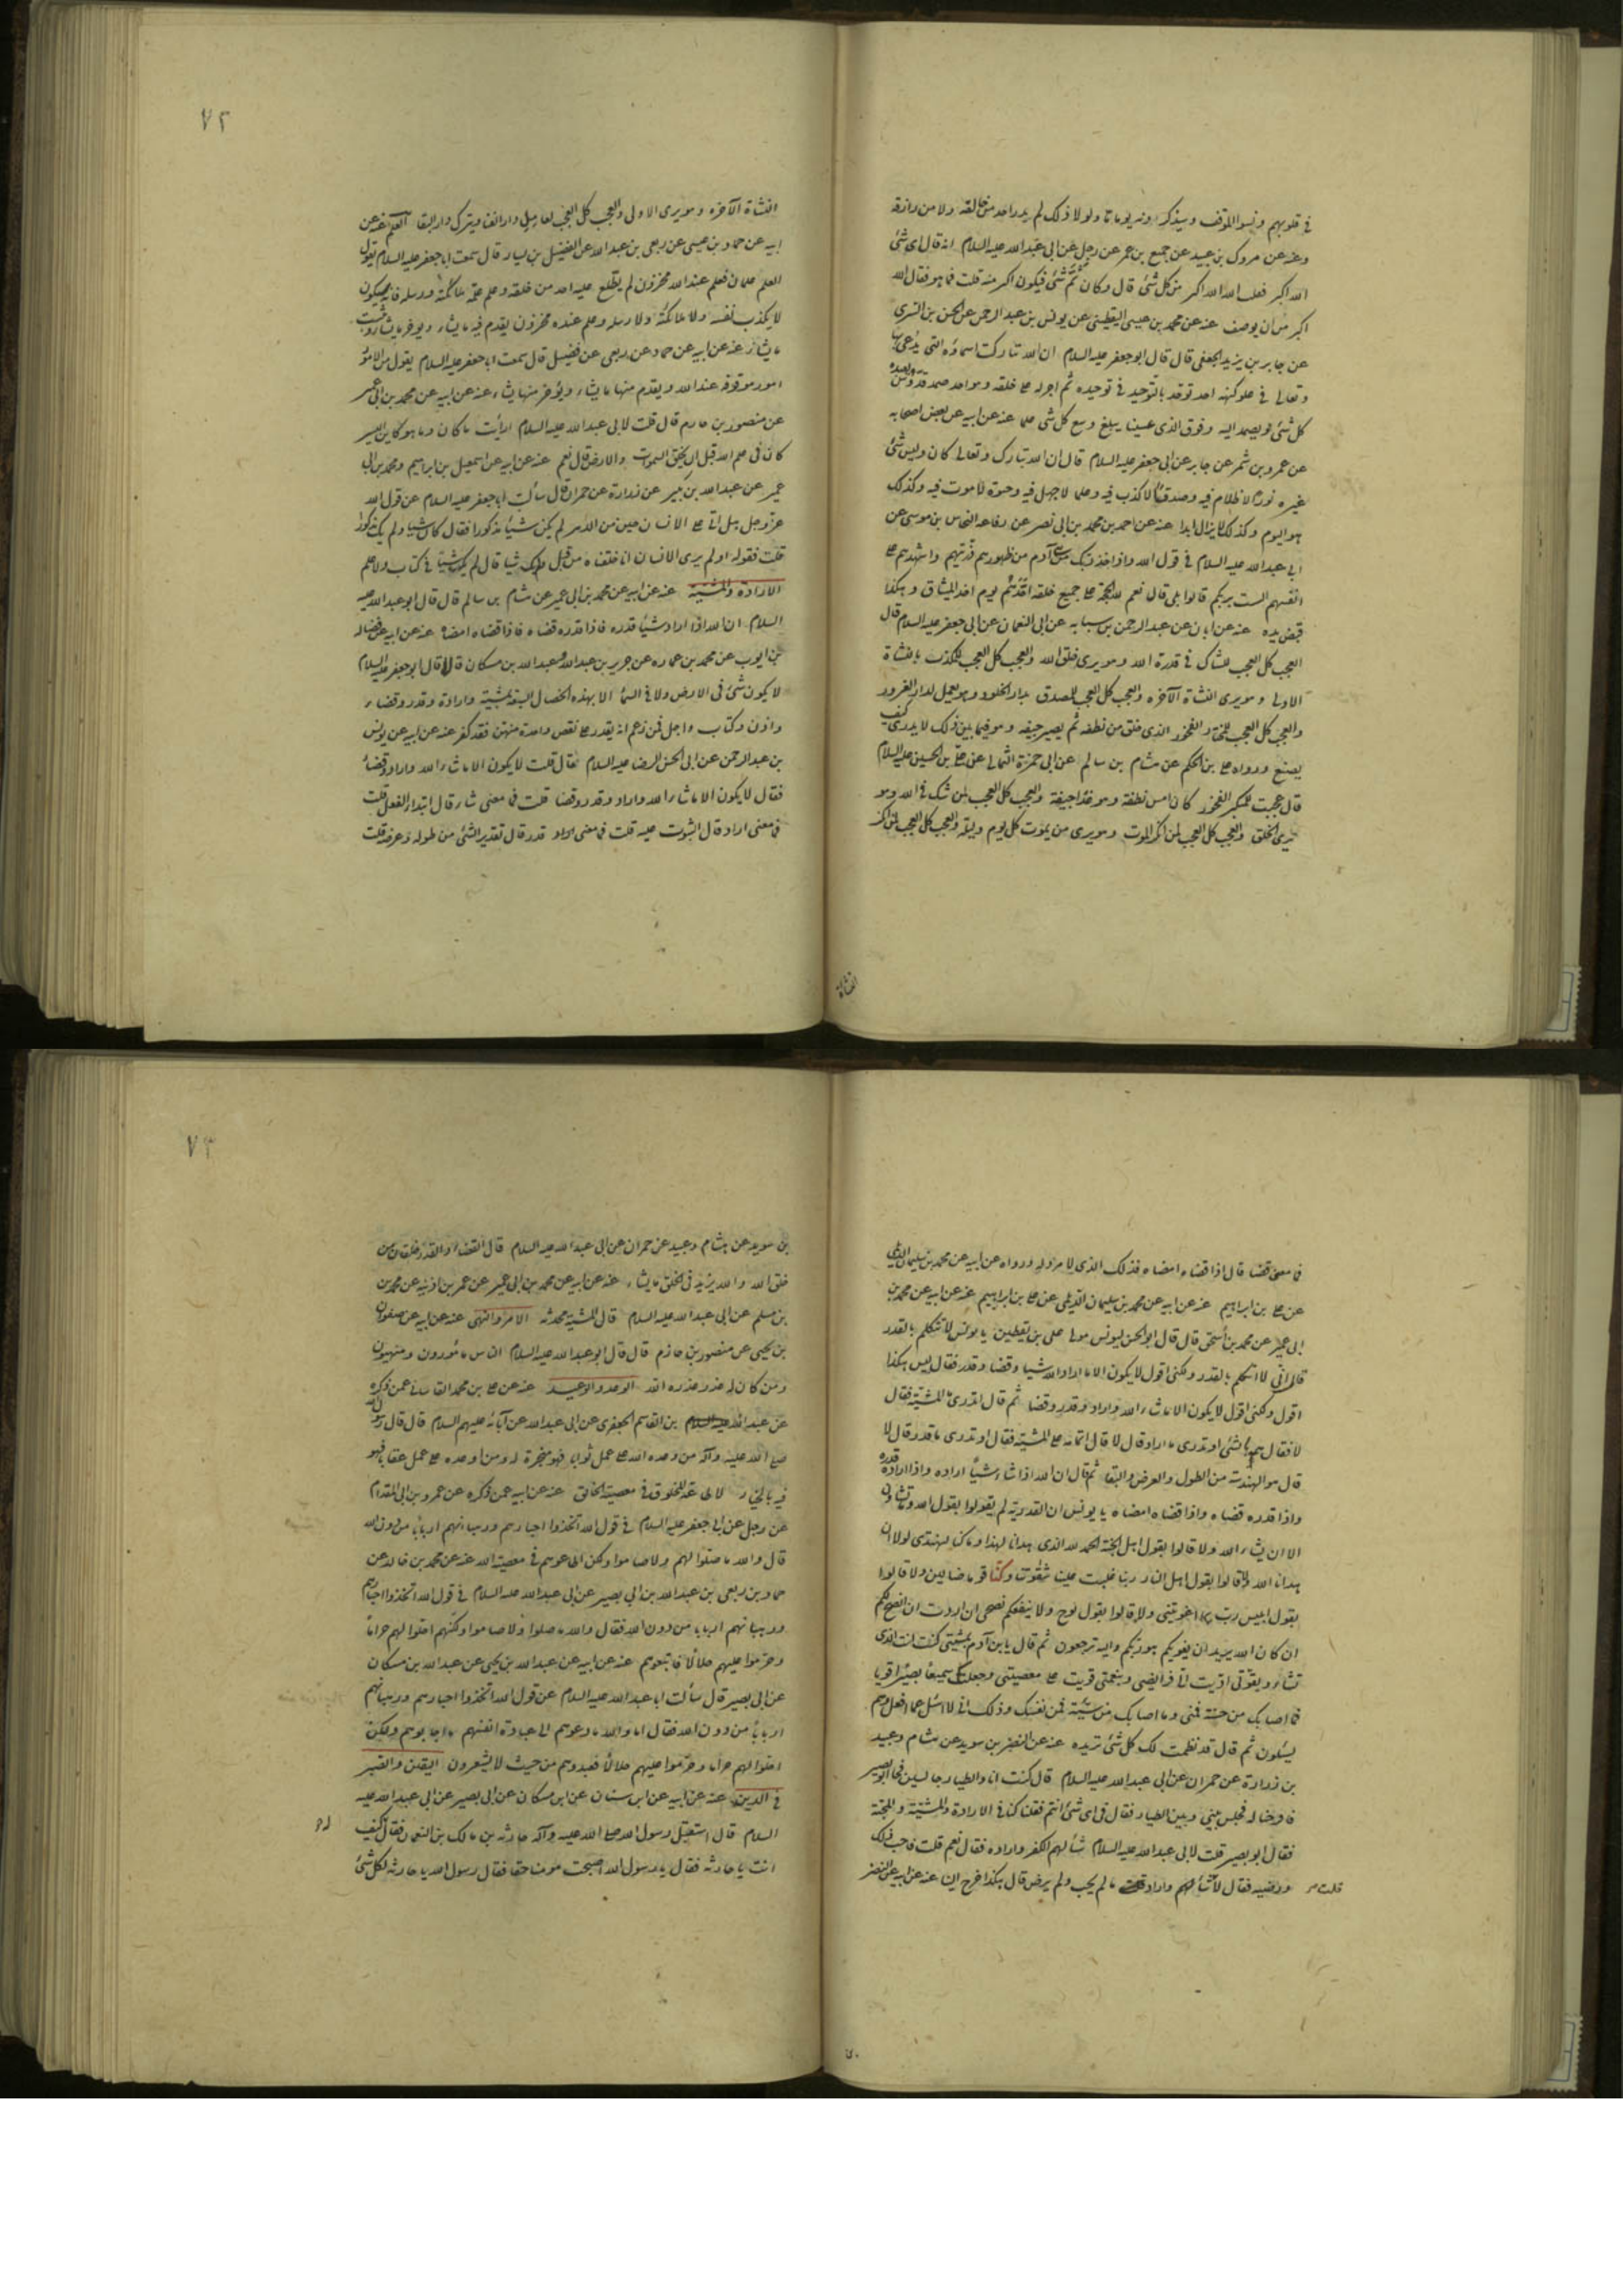 في قلوبهم ونسوا الموقف وسيذكرونه يوما ما ولولا ذلك لم يدر احد من خالقه ولا من رازقه
وعنه عن مروك بن عبيد عن جميع بن عمر عن رجل عن ابي عبد الله عليه السلام انه قال اي شئ
الله اكبر فقلت الله اكبر من كل شئ قال وكان ثم شئ فيكون اكبر منه قلت فما هو فقال الله
اكبر من ان يوصف عنه عن محمد بن عيسى اليقطيني عن يونس بن عبد الرحمن عن الحسن بن السري
عن جابر بن يزيد الجعفي قال قال ابو جعفر عليه السلام ان الله تباركت اسماؤه التي يدعى بها
وتعالى في علو كنهه احد توحد بالتوحيد في توحيده ثم اجراه على خلقه فهو احد صمد قدوس يعبده
كل شئ ويصمد اليه وفوق الذي عسينا يبلغ وسع كل شئ علما عنه عن ابيه عن بعض اصحابه
عن عمرو بن شمر عن جابر عن ابي جعفر عليه السلام قال ان الله تبارك وتعالى كان وليس شئ
غيره نورا لا ظلام فيه وصدقا لا كذب فيه وعلما لا جهل فيه وحيوة لا موت فيه وكذلك
هو اليوم وكذلك لا يزال ابدا عنه عن احمد بن محمد بن ابي نصر عن رفاعه النخاس بن موسى عن
ابي عبد الله عليه السلام في قول الله واذ اخذ ربك من بني آدم من ظهورهم ذريتهم واشهدهم على
انفسهم الست بربكم قالوا بلى قال نعم لله الحجة على جميع خلقه اخذهم يوم اخذ الميثاق وهكذا
قبض يده عنه عن ابان عن عبد الرحمن بن سيابه عن ابي النعمان عن ابي جعفر عليه السلام قال
العجب كل العجب للشاك في قدرة الله وهو يرى خلق الله والعجب كل العجب للمكذب بالنشاة
الاولى وهو يرى النشاة الآخره والعجب كل العجب للمصدق بدار الخلود وهو يعمل لدار الغرور
والعجب كل العجب للمختال الفخور الذي خلق من نطفه ثم يصير جيفه وهو فيما بين ذلك لا يدري كيف
يصنع ورواه على بن الحكم عن هشام بن سالم عن ابي حمزة الثمالي عن علي بن الحسين عليه السلام
قال عجبت للمتكبر الفخور كان امس نطفة وهو غدا جيفة والعجب كل العجب لمن شك في الله وهو
يرى الخلق والعجب كل العجب لمن انكر الموت وهو يرى من يموت كل يوم وليلة والعجب كل العجب لمن انكر
النشاة
٧٢
النشاة الآخره وهو يرى الاولى والعجب كل العجب لعامل دار الفنا ويترك دار البقا العلم عنه عن
ابيه عن حماد بن عيسى عن ربعي بن عبد الله عن الفضيل بن يسار قال سمعت ابا جعفر عليه السلام يقول
العلم علمان فعلم عند الله مخزون لم يطلع عليه احد من خلقه وعلم علمه ملائكته ورسله فانه سيكون
لا يكذب نفسه ولا ملائكته ولا رسله وعلم عنده مخزون يقدم فيه ما يشاء ويؤخر ما يشاء ويثبت
ما يشاء عنه عن ابيه عن حماد عن ربعي عن فضيل قال سمعت ابا جعفر عليه السلام يقول من الامور
امور موقوفة عند الله ويقدم منها ما يشاء ويؤخر منها يشاء عنه عن ابيه عن محمد بن ابي عمير
عن منصور بن حازم قال قلت لابي عبد الله عليه السلام ارأيت ما كان وما هو كاين اليس
كان في علم الله قبل ان يخلق السموات والارض قال نعم عنه عن ابيه عن اسمعيل بن ابراهيم ومحمد بن ابي
عمير عن عبد الله بن بكير عن زرارة عن حمران قال سألت ابا جعفر عليه السلام عن قول الله
عز وجل هل اتى على الانسان حين من الدهر لم يكن شيئا مذكورا فقال كان شيئا ولم يك مذكورا
قلت فقوله اولم يرى الانسان انا خلقناه من قبل ولم يك شيئا قال لم يك شيئا في كتاب ولا علم
الارادة والمشية عنه عن ابيه عن محمد بن ابي عمير عن هشام بن سالم قال قال ابو عبد الله عليه
السلام ان الله اذا اراد شيئا قدره فاذا قدره قضاه فاذا قضاه امضاه عنه عن ابيه عن فضاله
عن ايوب عن محمد بن عماره عن حريز بن عبد الله وعبد الله بن مسكان قالا قال ابو جعفر عليه السلام
لا يكون شئ في الارض ولا في السماء الا بهذه الخصال السبعة بمشية وارادة وقدر وقضاء
واذن وكتاب واجل فمن زعم انه يقدر على نقص واحدة منهن فقد كفر عنه عن ابيه عن يونس
بن عبد الرحمن عن ابي الحسن الرضا عليه السلام قال قلت لا يكون الا ما شاء الله واراد وقضى
فقال لا يكون الا ما شاء الله واراد وقدر وقضا قلت فما معنى شاء قال ابتداء الفعل قلت
فما معنى اراد قال الثبوت عليه قلت فما معنى قدر قال تقدير الشئ من طوله وعرضه قلت
فما معنى قضا قال اذا قضاه امضاه فذلك الذي لا مرد له ورواه عن ابيه عن محمد بن سليمان الديلمي
عن على بن ابراهيم عنه عن ابيه عن محمد بن سليمان الديلمي عن على بن ابراهيم عنه عن ابيه عن محمد بن
ابي عمير عن محمد بن اسحق قال قال ابو الحسن ليونس مولى على بن يقطين يا يونس لا تتكلم بالقدر
قال اني لا اتكلم بالقدر ولكني اقول لا يكون الا ما اراد الله شيئا وقضا وقدر فقال ليس هكذا
اقول ولكني اقول لا يكون الا ما شاء الله واراد وقدر وقضا ثم قال اتدري ما المشية فقال
لا فقال همه بالشئ اوتدري ما اراد قال لا قال اتمامه على المشية فقال اوتدري ما قدر قال لا
قال هو الهندسة من الطول والعرض والبقا ثم قال ان الله اذا شاء شيئا اراده واذا اراده قدره
واذا قدره قضاه واذا قضاه امضاه يا يونس ان القدرية لم يقولوا بقول الله وما تشاؤن
الا ان يشاء الله ولا قالوا بقول اهل الجنة الحمد لله الذي هدانا لهذا وما كنا لنهتدي لولا ان
هدانا الله ولا قالوا بقول اهل النار ربنا غلبت علينا شقوتنا وكنا قوما ضالين ولا قالوا
بقول ابليس رب بما اغويتني ولا قالوا بقول نوح ولا ينفعكم نصحي ان اردت ان انصح لكم
ان كان الله يريد ان يغويكم هو ربكم واليه ترجعون ثم قال يا بن آدم بمشيتي كنت انت الذي
تشاء وبقوتي اديت الي فرايضي وبنعمتي قويت على معصيتي وجعلتك سميعا بصيرا قويا
فما اصابك من حسنة فمني وما اصابك من سيئة فمن نفسك وذلك اني لا اسئل عما افعل وهم
يسئلون ثم قال قد نظمت لك كل شئ تريده عنه عن النضر بن سويد عن هشام وعبيد
بن زرارة عن حمران عن ابي عبد الله عليه السلام قال كنت انا والطيار جالسين فجاء ابو بصير
فافرجنا له فجلس بيني وبين الطيار فقال في اي شئ انتم فقلنا كنا في الارادة والمشية والمحبة
فقال ابو بصير قلت لابي عبد الله عليه السلام شاء لهم الكفر واراده فقال نعم قلت فاحب ذلك
ورضيه فقال لا قلت شاء لهم واراد ما لم يحب ولم يرض قال هكذا خرج الينا عنه عن ابيه عن النضر
قلت
٧٣
بن سويد عن هشام وعبيد عن حمران عن ابي عبد الله عليه السلام قال القضاء والقدر خلقان من
خلق الله والله يزيد في الخلق ما يشاء عنه عن ابيه عن محمد بن ابي عمير عن عمر بن اذينه عن محمد بن
بن مسلم عن ابي عبد الله عليه السلام قال المشية محدثه الامر والنهى عنه عن ابيه عن صفوان
بن يحيى عن منصور بن حازم قال قال ابو عبد الله عليه السلام الناس مأمورون ومنهيون
ومن كان له عذر عذره الله الوعد والوعيد عنه عن على بن محمد القاساني عمن ذكره
عن عبد الله بن القاسم الجعفري عن ابي عبد الله عن آبائه عليهم السلام قال قال رسول الله
صلى الله عليه وآله من وعده الله على عمل ثوابا فهو منجزة له ومن اوعده على عمل عقابا فهو
فيه بالخيار لا طاعة لمخلوق في معصية الخالق عنه عن ابيه عمن ذكره عن عمرو بن ابي المقدام
عن رجل عن ابي جعفر عليه السلام في قول الله اتخذوا احبارهم ورهبانهم اربابا من دون الله
قال والله ما صلوا لهم ولا صاموا ولكن اطاعوهم في معصية الله عنه عن محمد بن خالد عن
حماد بن ربعي بن عبد الله بن ابي بصير عن ابي عبد الله عليه السلام في قول الله اتخذوا احبارهم
ورهبانهم اربابا من دون الله فقال والله ما صلوا ولا صاموا ولكنهم احلوا لهم حراما
وحرموا عليهم حلالا فاتبعوهم عنه عن ابيه عن عبد الله بن يحيى عن عبد الله بن مسكان
عن ابي بصير قال سألت ابا عبد الله عليه السلام عن قول الله اتخذوا احبارهم ورهبانهم
اربابا من دون الله فقال اما والله ما دعوهم الى عبادة انفسهم ما اجابوهم ولكن
احلوا لهم حراما وحرموا عليهم حلالا فعبدوهم من حيث لا يشعرون اليقين والصبر
في الدين عنه عن ابيه عن ابن سنان عن ابن مسكان عن ابي بصير عن ابي عبد الله عليه
السلام قال استقبل رسول الله صلى الله عليه وآله حارثه بن مالك بن النعمان فقال كيف
انت يا حارثه فقال يا رسول الله اصبحت مومنا حقا فقال رسول الله يا حارثه لكل شئ